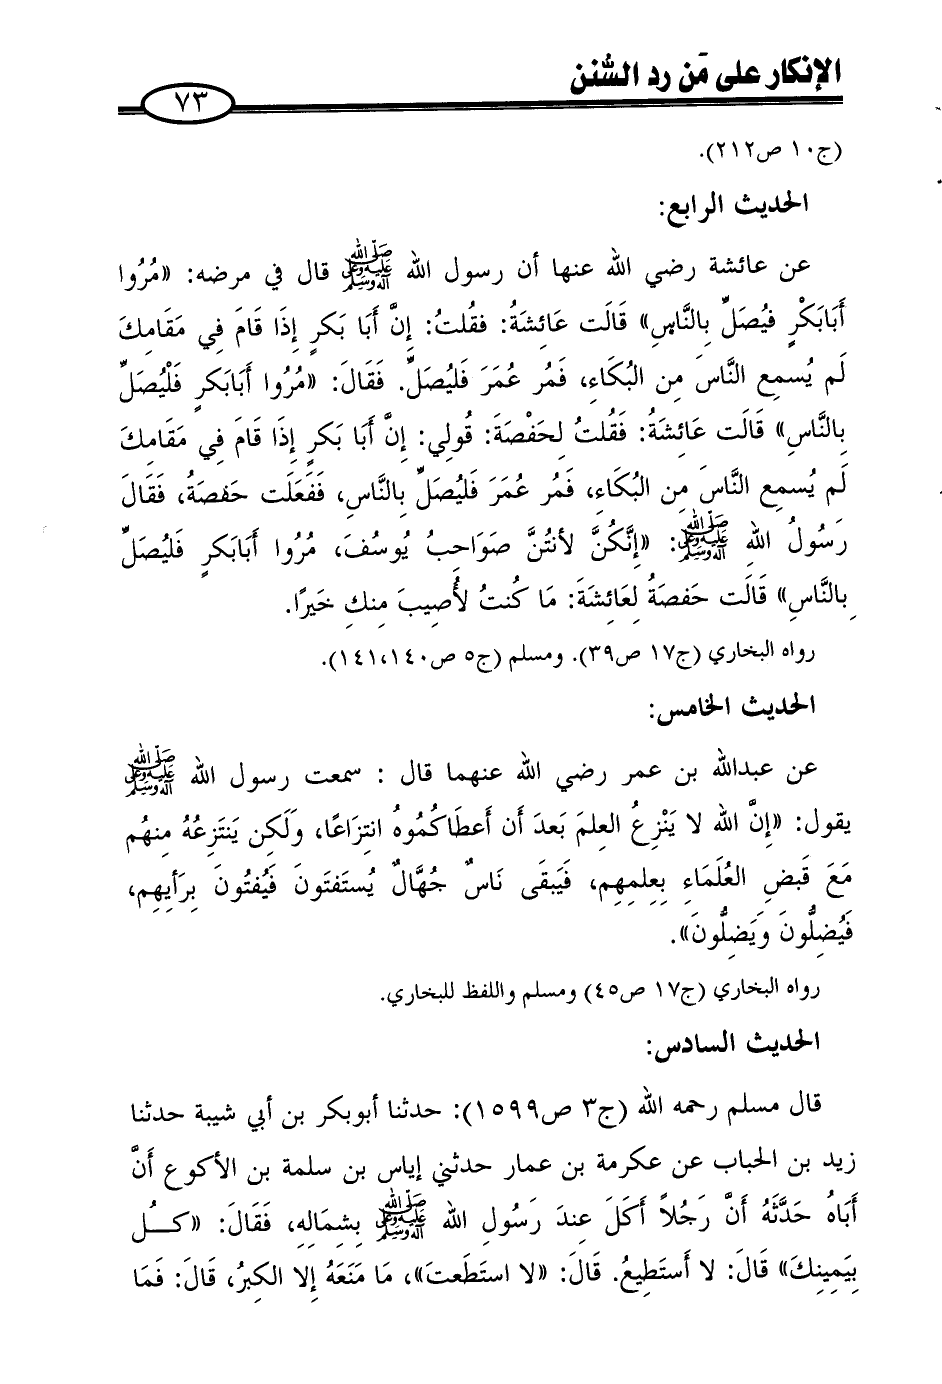 الإنكار على مَن رد السُّنن
٧٣
(ج١٠ ص٢١٢).
الحديث الرابع:
عن عائشة رضي الله عنها أن رسول الله ﷺ قال في مرضه: «مُرُوا
أَبَابَكْرٍ فَيُصَلِّ بِالنَّاسِ» قَالَت عَائِشَةُ: فقُلتُ: إِنَّ أَبَا بَكرٍ إِذَا قَامَ فِي مَقَامِكَ
لَم يُسمِعِ النَّاسَ مِن البُكَاءِ، فَمُر عُمَرَ فَليُصَلِّ. فَقَالَ: «مُرُوا أَبَابَكرٍ فَلْيُصَلِّ
بِالنَّاسِ» قَالَت عَائِشَةُ: فَقُلتُ لِحَفْصَةَ: قُولِي: إِنَّ أَبَا بَكرٍ إِذَا قَامَ فِي مَقَامِكَ
لَم يُسمِعِ النَّاسَ مِن البُكَاءِ، فَمُر عُمَرَ فَليُصَلِّ بِالنَّاسِ، فَفَعَلَت حَفصَةُ، فَقَالَ
رَسُولُ اللهِ ﷺ: «إِنَّكُنَّ لأنتُنَّ صَوَاحِبُ يُوسُفَ، مُرُوا أَبَابَكرٍ فَليُصَلِّ
بِالنَّاسِ» قَالَت حَفصَةُ لِعَائِشَةَ: مَا كُنتُ لأُصِيبَ مِنكِ خَيرًا.
رواه البخاري (ج١٧ ص٣٩). ومسلم (ج٥ ص١٤٠،١٤١).
الحديث الخامس:
عن عبدالله بن عمر رضي الله عنهما قال : سمعت رسول الله ﷺ
يقول: «إِنَّ الله لا يَنْزِعُ العِلمَ بَعدَ أَن أَعطَاكُمُوهُ انتِزَاعًا، وَلَكِن يَنتَزِعُهُ مِنهُم
مَعَ قَبضِ العُلَمَاءِ بِعِلمِهِم، فَيَبقَى نَاسٌ جُهَّالٌ يُستَفتَونَ فَيُفتُونَ بِرَأيِهِم،
فَيُضِلُّونَ وَيَضِلُّونَ».
رواه البخاري (ج١٧ ص٤٥) ومسلم واللفظ للبخاري.
الحديث السادس:
قال مسلم رحمه الله (ج٣ ص١٥٩٩): حدثنا أبوبكر بن أبي شيبة حدثنا
زيد بن الحباب عن عكرمة بن عمار حدثني إياس بن سلمة بن الأكوع أَنَّ
أَبَاهُ حَدَّثَهُ أَنَّ رَجُلاً أَكَلَ عِندَ رَسُولِ الله ﷺ بِشِمَالِهِ، فَقَالَ: «كُــلُ
بِيَمِينِكَ» قَالَ: لا أَستَطِيعُ. قَالَ: «لا استَطَعتَ»، مَا مَنَعَهُ إِلا الكِبرُ، قَالَ: فَمَا